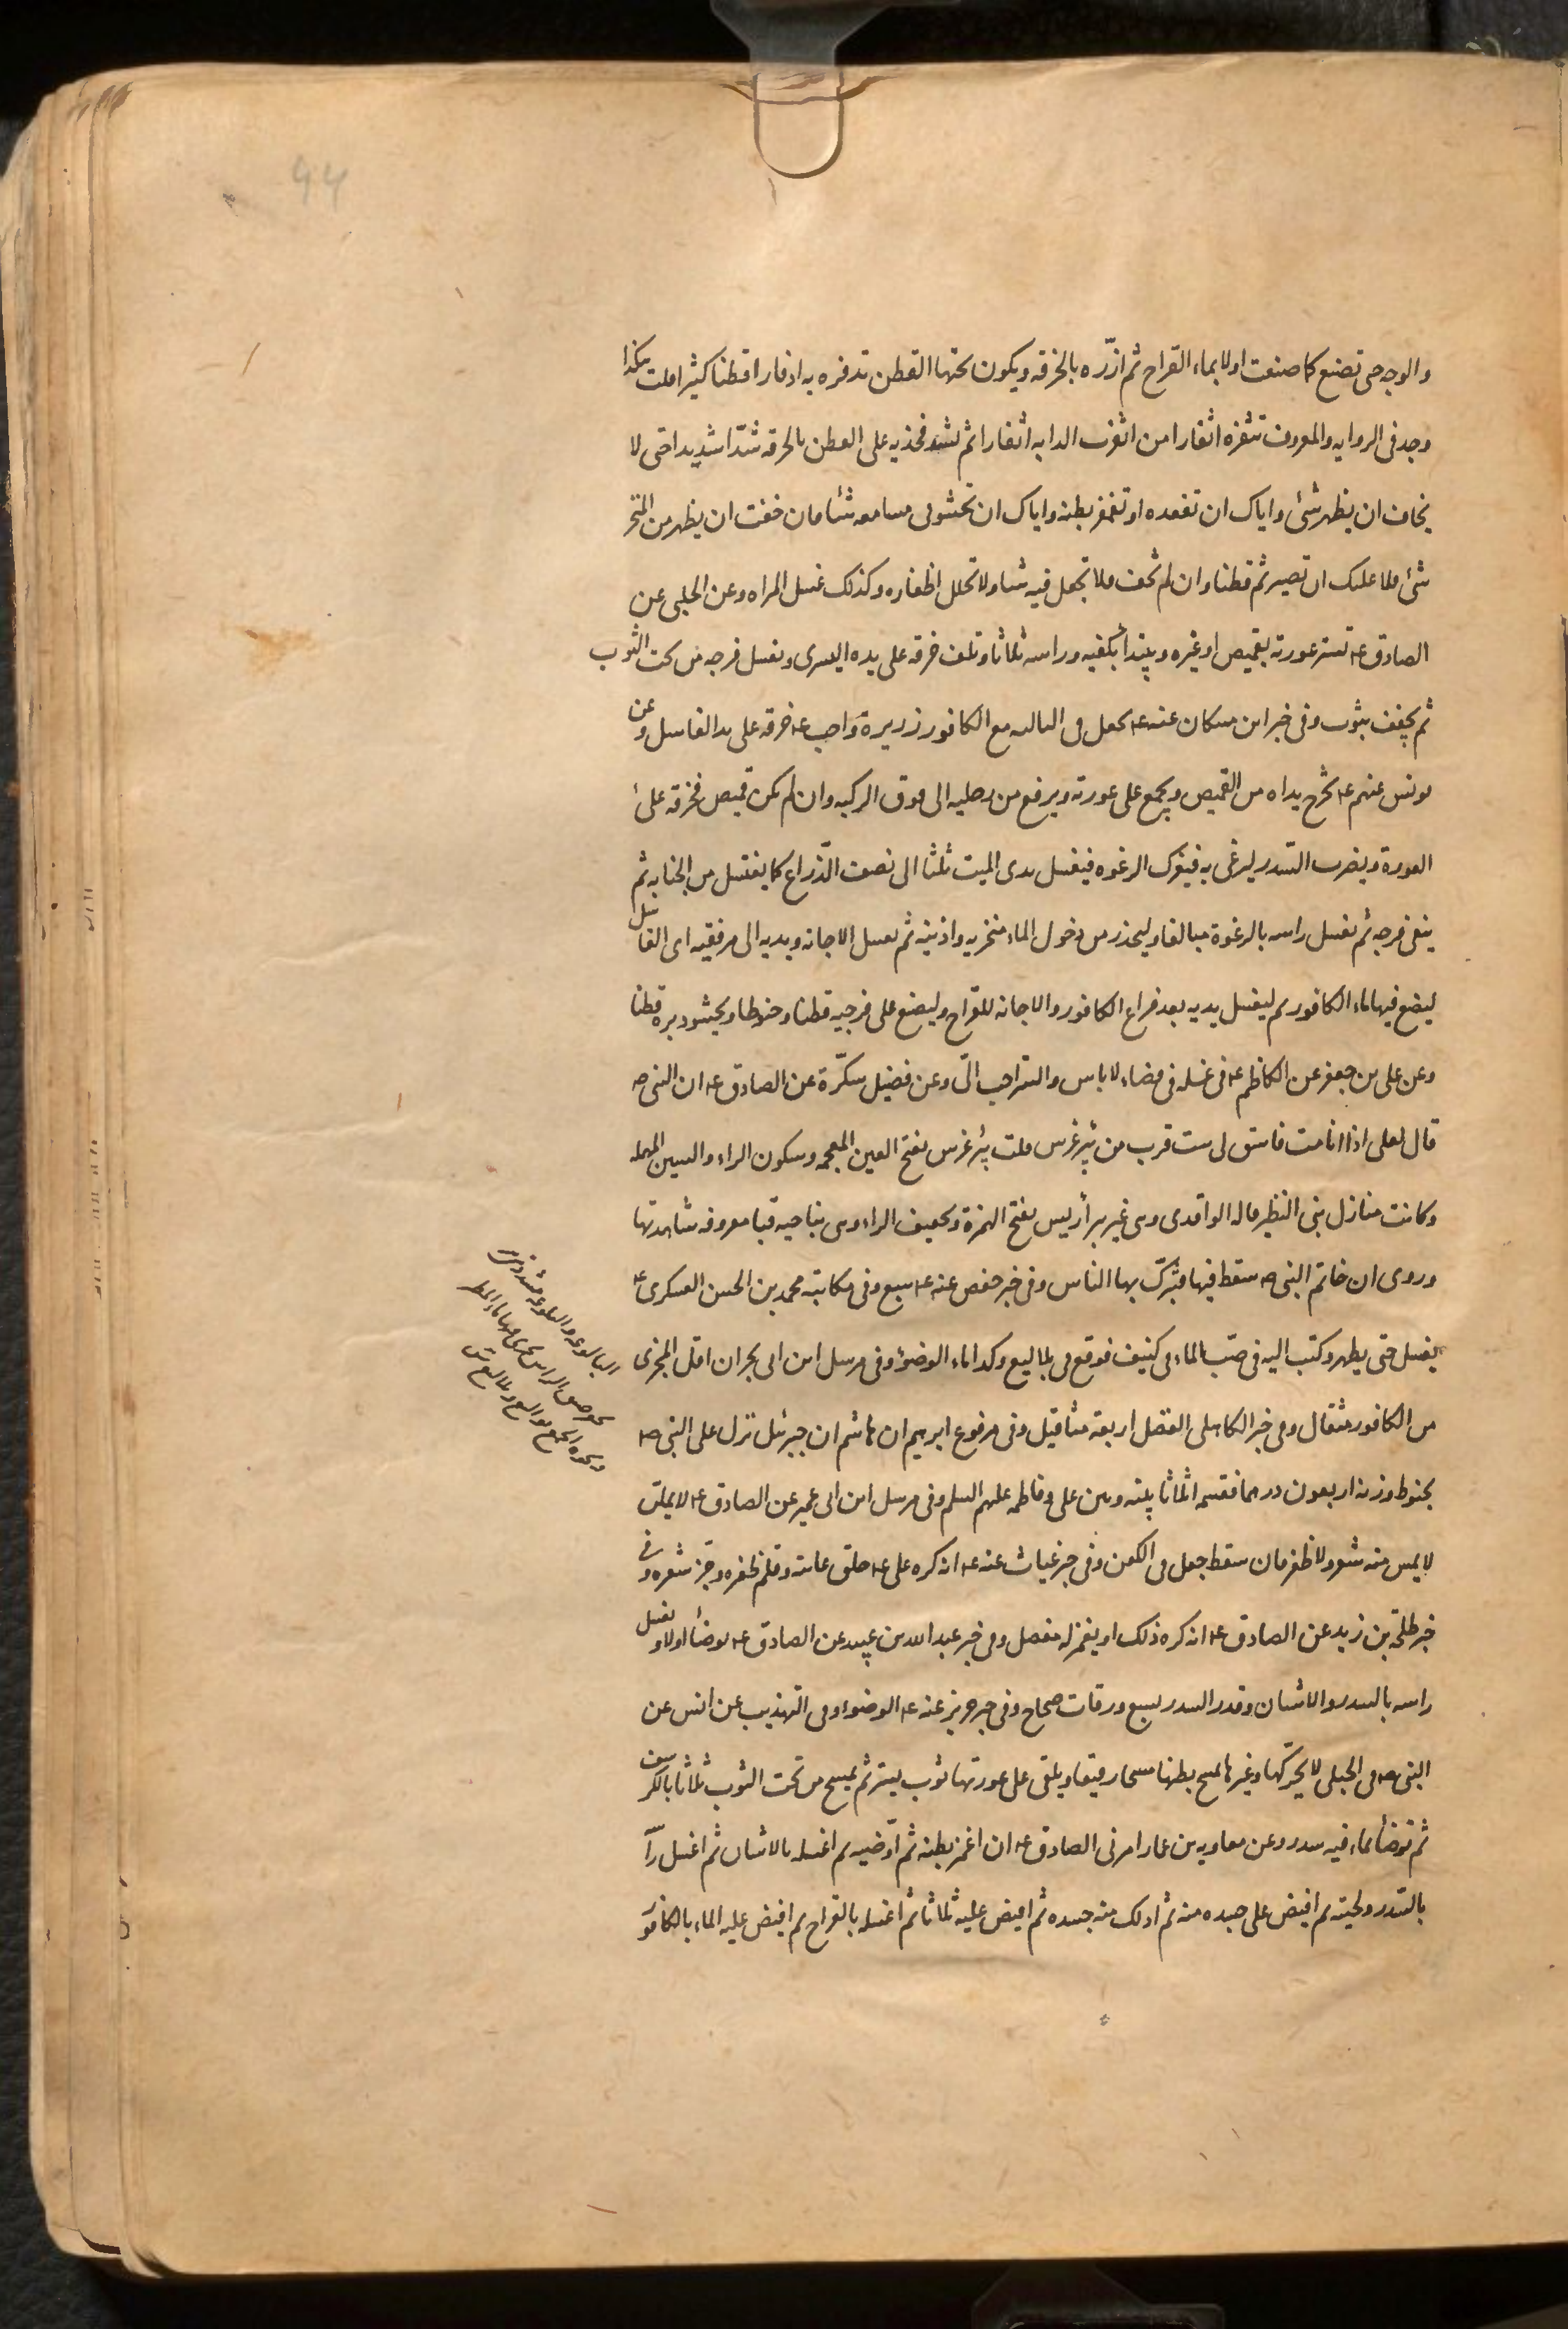 44
والوجه حتى تصنع كما صنعت اولا بماء القراح ثم ازّره بالخرقه ويكون تحتها القطن تدفره به اذفارا قطنا كثيرا قلت هكذا
وجد في الروايه والمعروف تثفره اثفارا من اثفرت الدابه اثفارا ثم تشد فخذيه على القطن بالخرقه شدّا شديدا حتى لا
يخاف ان يظهر شئ واياك ان تقعده او تغمز بطنه واياك ان تحشو في مسامعه شئا فان خفت ان يظهر من المنخر
شئ فلا عليك ان تصير ثم قطنا وان لم تخف فلا تجعل فيه شئا ولا تخلل اظفاره وكذلك غسل المراه وعن الحلبي عن
الصادق ع تستر عورته بقميص او غيره ويبتدأ بكفيه وراسه ثلاثا وتلف خرقه على يده اليسرى وتغسل فرجه من تحت الثوب
ثم يجفف بثوب وفي خبر ابن مسكان عنه ع يجعل في الثالثه مع الكافور زريرة واحب ع خرقه على يد الغاسل وعن
يونس عنهم ع تخرج يداه من القميص ويجمع على عورته ويرفع من رجليه الى فوق الركبه وان لم يكن قميص فخرقه على
العورة ويضرب السّدر ليرغى به فيترك الرغوه فيغسل يدى الميت ثلثا الى نصف الذّراع كما يغتسل من الجنابه ثم
ينقى فرجه ثم تغسل راسه بالرغوة مبالغا وليحذر من دخول الماء منخريه واذنيه ثم تغسل الاجانه ويديه الى مرفقيه اى الغاسل
ليضع فيها ماء الكافور ثم ليغسل يديه بعد فراغ الكافور والاجانه للقراح وليضع على فرجيه قطنا وحنوطا ويحشو دبره قطنا
وعن على بن جعفر عن الكاظم ع في غسله في فضاء لا باس والستر احب الىّ وعن فضيل سكّرة عن الصادق ع ان النبى ص
قال لعلى اذا انا مت فاستق لى ست قرب من بئر غرس قلت بئر غرس بفتح الغين المعجمه وسكون الراء والسين المهمله
وكانت منازل بنى النظير قاله الواقدى وهى غير بئر أريس بفتح الهمزة وتخفيف الراء وهى بناحيه قبا معروفه شاهدتها
وروى ان خاتم النبى ص سقط فيها فتبرّك بها الناس وفي خبر حفص عنه ع سبع وفي مكاتبة محمد بن الحسن العسكرى ع
يغسل حتى يطهر وكتب اليه في صبّ الماء في كنيف فوقع في بلاليع وكذا ماء الوضوء وفي مرسل ابن ابى نجران اقل المجزى
من الكافور مثقال وفي خبر الكاهلى الفضل اربعة مثاقيل وفي مرفوع ابرهيم ابن هاشم ان جبرئيل نزل على النبى ص
بحنوط وزنه اربعون درهما فقسمه اثلاثا بينه وبين على وفاطمه عليهم السلم وفي مرسل ابن ابى عمير عن الصادق ع لا يحلق
لا يمس منه شعر ولا ظفر فان سقط جعل في الكفن وفي خبر غياث عنه ع انه كره على ع حلق عانته وقلم ظفره وجز شعره وفي
خبر طلحة بن زيد عن الصادق ع انه كره ذلك او يغمز له مفصل وفي خبر عبد الله بن عبيد عن الصادق ع يوضأ اولا وتغسل
راسه بالسدر والاشنان وقدر السدر بسبع ورقات صحاح وفي خبر حريز عنه ع الوضوء وفي التهذيب عن انس عن
النبى ص في الحبلى لا يحرّكها وغيرها يمسح بطنها مسحا رقيقا ويلقى على عورتها ثوب يستر ثم يمسح من تحت الثوب ثلاثا بالكرسف
ثم توضأ بماء فيه سدر وعن معاويه بن عمار امرنى الصادق ع ان اغمز بطنه ثم اوضيه ثم اغسله بالاشنان ثم اغسل را
بالسّدر ولحيته ثم افيض على جسده منه ثم ادلك منه جسده ثم افيض عليه ثلاثا ثم اغسله بالقراح ثم افيض عليه الماء بالكافور
البالوعه والبلوعه مشددتين
الراس يجرى فيها ماء المطر